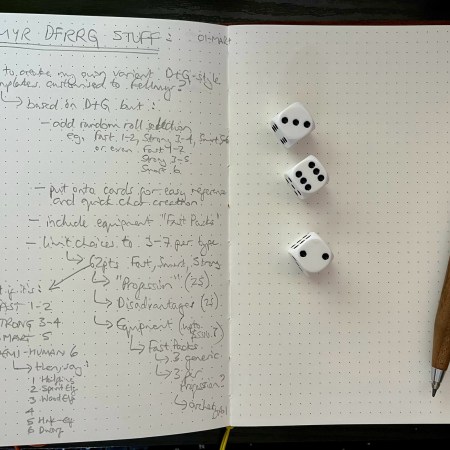 MYR DFRRG STUFF: 01-MAR
to create my own variant D+G-style
templates customised to
based on D+G but:
- add random roll selection
eg. Fast 1-2, Strong 3-4, Smart 5-6
or even Fast 1-2
Strong 3-5
Smart 6
- put onto cards for easy reference
and quick char creation
- include equipment "Fast Packs"
- limit choices to 3-7 per type
62pts. Fast, Smart, Strong
"Profession" (25)
Disadvantages (25)
Equipment (upto
Fast Packs
3 generic
3 per
Profession?
archetypal
if it is:
FAST 1-2
STRONG 3-4
SMART 5
-HUMAN 6
then, say:
1
2
3 Wood Elf
4
5 Half-Elf
6 Dwarf